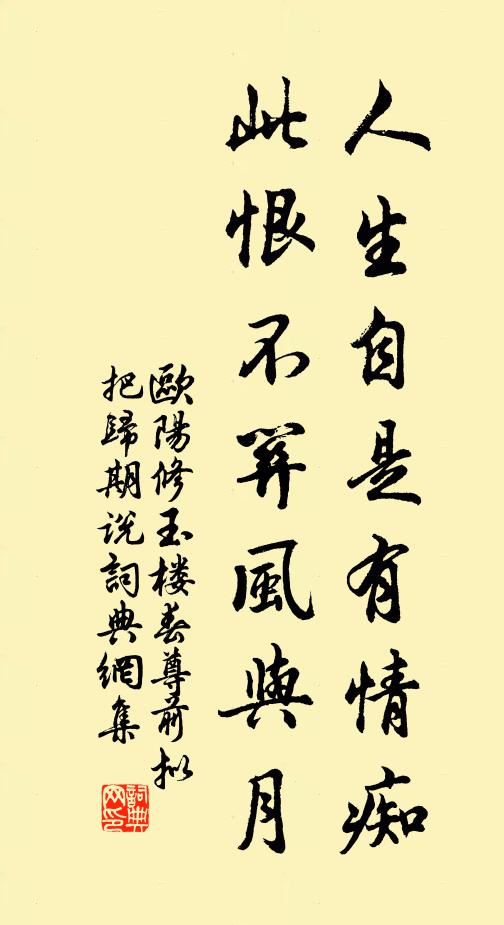 人生自是有情痴
此恨不關風與月
歐陽修玉楼春尊前拟
把歸期说詞典網集
詞典
网印